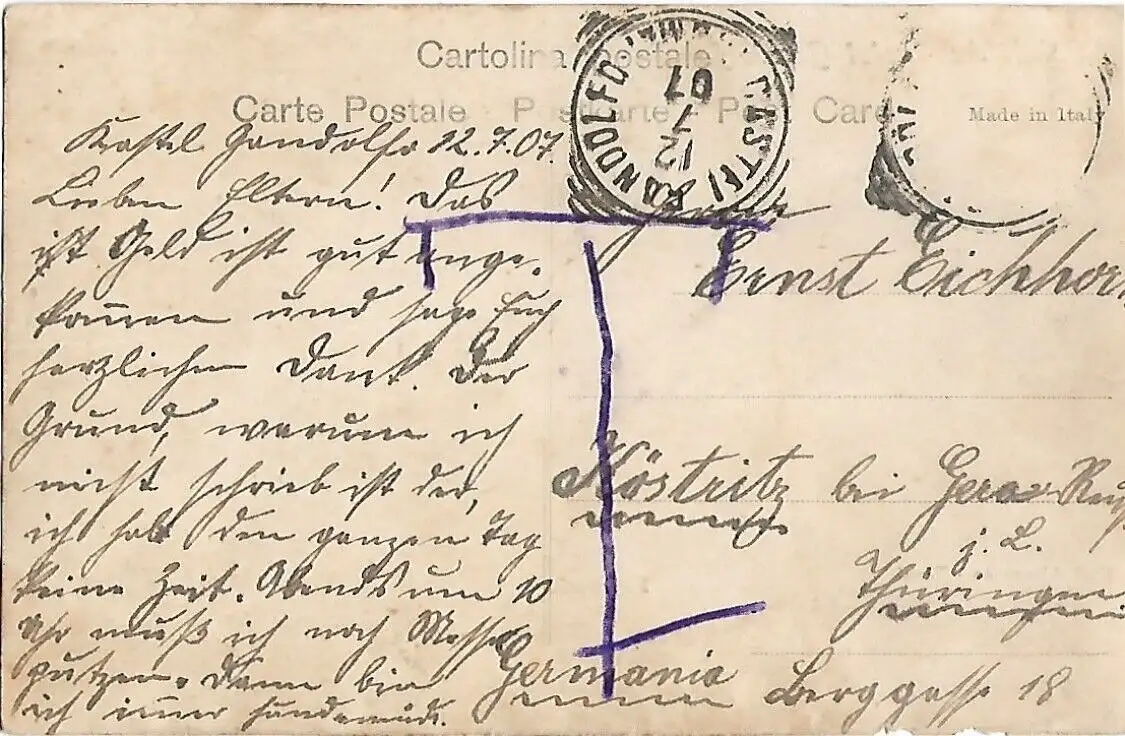 Cartolina postale
Carte Postale Postkarte Post Card
Made in Italy
CASTEL GANDOLFO
12 7 07
Kastel Gandolfo 12.7.07.
Lieben Eltern! Das
ist Geld ist gut ange-
kommen und sage Euch
herzlichen Dank. Der
Grund, warum ich
nicht schrieb ist der,
ich hab den ganzen Tag
keine Zeit. Abends um 10
Uhr muß ich noch Messer
putzen. Dann bin
ich imer hundemüde.
Ernst Eichhorn
Köstritz bei Gera Reuß
j. L.
Thüringen
Germania Berggasse 18